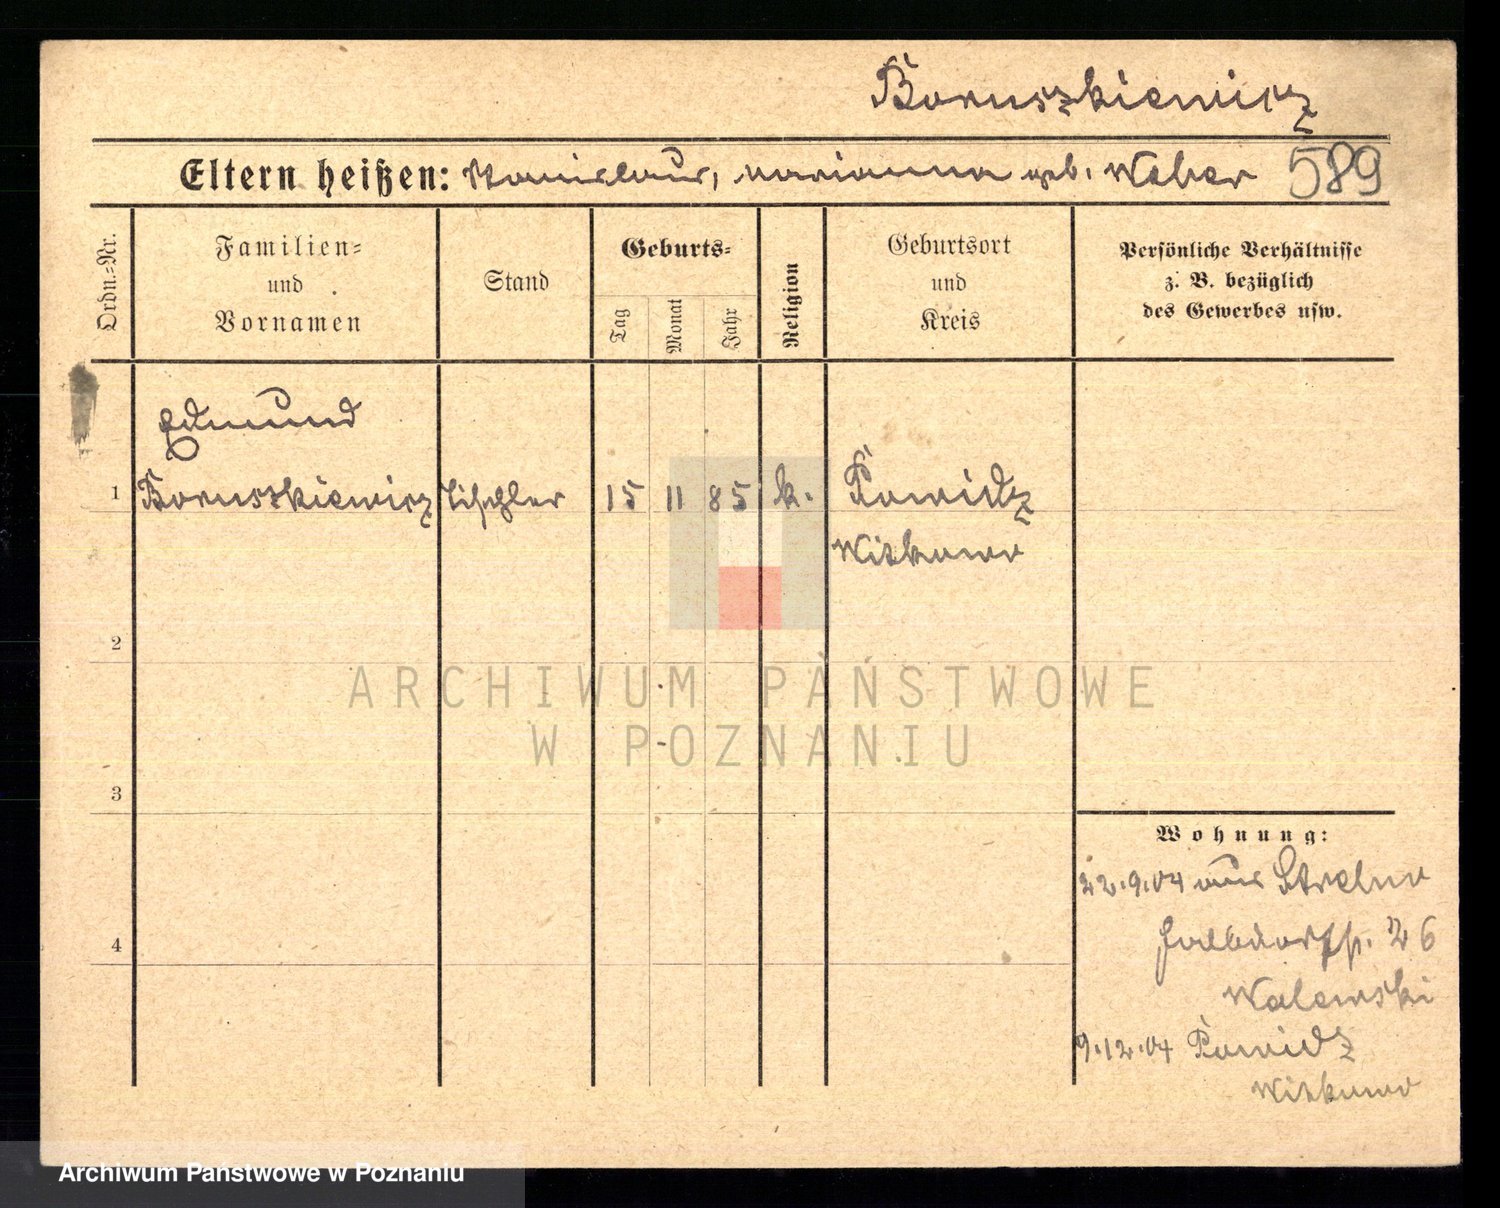 Boruszkiewicz
Eltern heißen: Stanislaus, Marianna geb. Weber 589
Ordn.-Nr.
Familien-
und
Vornamen
Stand
Geburts-
Tag
Monat
Jahr
Religion
Geburtsort
und
Kreis
Persönliche Verhältnisse
z. B. bezüglich
des Gewerbes usw.
Edmund
1 Boruszkiewicz Tischler 15 11 85 k. Powidz
Witkowo
2
3
4
Wohnung:
22.9.04 aus Strelno
26
Walewski
9.12.04 Powidz
Witkowo
ARCHIWUM PAŃSTWOWE
W POZNANIU
Archiwum Państwowe w Poznaniu